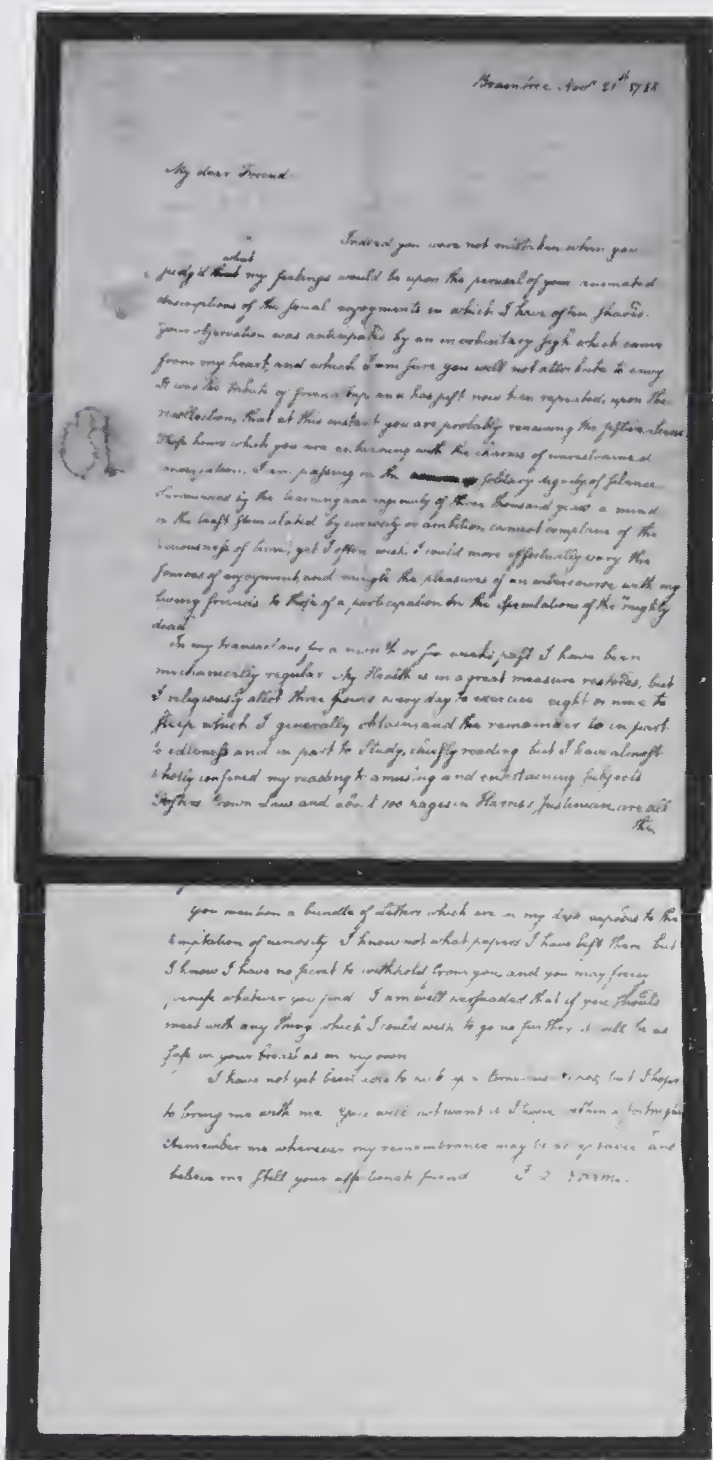 Braintree Novr 21st 1788
My dear Friend.
Indeed you were not mistaken when you
judg'd what my feelings would be upon the perusal of your animated
descriptions of the social enjoyments in which I have often shared.
Your observation was anticipated by an involuntary sigh which came
from my heart, and which I am sure you will not attribute to envy
It was the tribute of friendship, and has just now been repeated, upon the
recollection, that at this instant you are probably renewing the festive scenes
Those hours which you are enlivening with the charms of unrestrained
conversation, I am passing in the solitary dignity of silence.
Surrounded by the learning and ingenuity of three thousand years a mind
in the least stimulated by curiosity or ambition cannot complain of the
tediousness of time; yet I often wish I could more effectually vary the
sources of enjoyment, and mingle the pleasures of an intercourse with my
living friends to those of a participation in the speculations of the "mighty
dead"
In my transactions for a month or six weeks past I have been
mechanically regular My Health is in a great measure restored, but
I religiously allot three hours every day to exercise eight or nine to
sleep which I generally obtain, and the remainder is in part
to idleness and in part to Study, chiefly reading but I have almost
wholly confined my reading to amusing and entertaining subjects
Fosters Crown Law and about 100 pages in Harris's Justinian, are all
the
you mention a bundle of Letters which are in my desk exposed to the
temptation of curiosity I know not what papers I have left there but
I know I have no secret to withhold from you, and you may freely
peruse whatever you find I am well persuaded that if you should
meet with any thing which I could wish to go no further it will be as
safe in your breast as in my own
I have not yet been able to but I hope
to bring me with me You will not want it I hope within a fortnight
Remember me wherever my remembrance may be and
believe me still your affectionate friend J. Q. Adams.